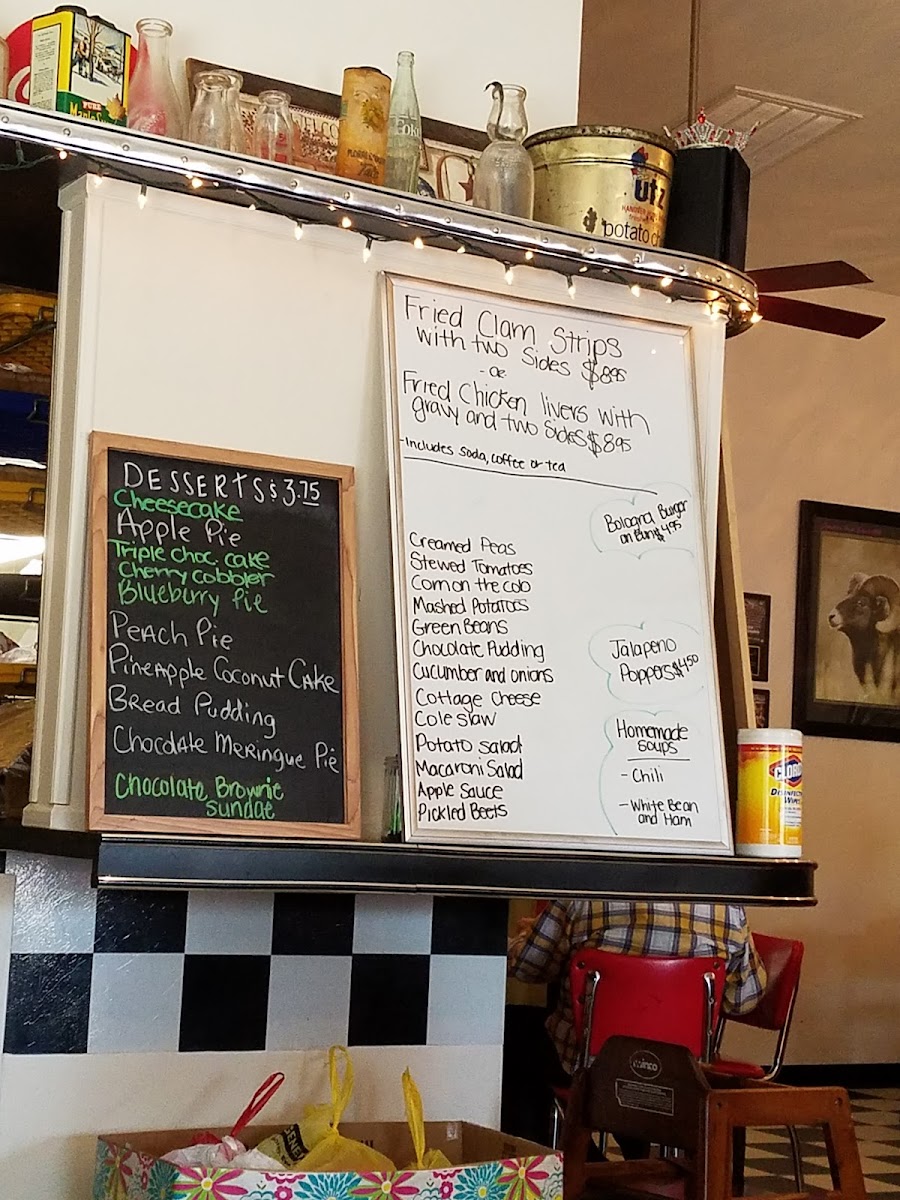 PURE
Maple Syrup
Coke
utz
potato ch
Fried Clam Strips
with two Sides $8.95
- or
Fried Chicken livers with
gravy and two Sides $8.95
-Includes soda, coffee or tea
Bologna Burger
on Bun $4.95
Creamed Peas
Stewed Tomatoes
Corn on the cob
Mashed Potatoes
Green Beans
Chocolate Pudding
Cucumber and onions
Cottage Cheese
Coleslaw
Potato salad
Macaroni Salad
Apple Sauce
Pickled Beets
Jalapeno
Poppers $4.50
Homemade
soups
- Chili
- White Bean
and Ham
DESSERTS $3.75
Cheesecake
Apple Pie
Triple choc. cake
Cherry cobbler
Blueburry Pie
Peach Pie
Pineapple Coconut Cake
Bread Pudding
Chocolate Meringue Pie
Chocolate Brownie
sundae
CLORO
DISINFECTI
WIPES
winco